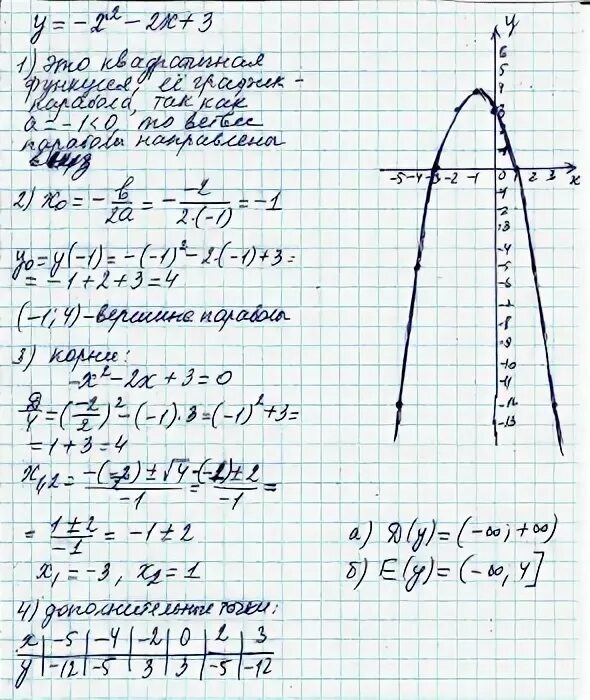 y = -x² - 2x + 3
1) Это квадратичная
функция, её график -
парабола, так как
a = -1 < 0, то ветви
параболы направлены
вниз
2) x₀ = - b/2a = - -2/2·(-1) = -1
y₀ = y(-1) = -(-1)² - 2·(-1) + 3 =
= -1 + 2 + 3 = 4
(-1; 4) - вершина параболы
3) корни:
-x² - 2x + 3 = 0
D/4 = (-2/2)² - (-1)·3 = (-1)² + 3 =
= 1 + 3 = 4
= 1±2/-1 = -1 ± 2
x₁ = -3, x₂ = 1
4) дополнительные точки:
x | -5 | -4 | -2 | 0 | 2 | 3
y | -12 | -5 | 3 | 3 | -5 | -12
y
x
-5 -4 -3 -2 -1 0 1 2 3
а) D(y) = (-∞; +∞)
б) E(y) = (-∞, 4]